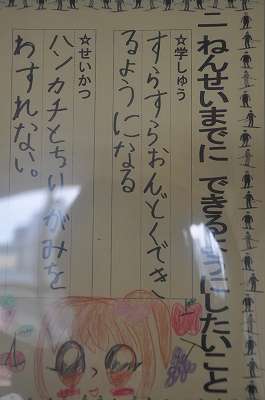 二ねんせいまでに できるようにしたいこと
☆学しゅう
すらすらおんどくでき
るようになる
☆せいかつ
ハンカチとちりがみを
わすれない。